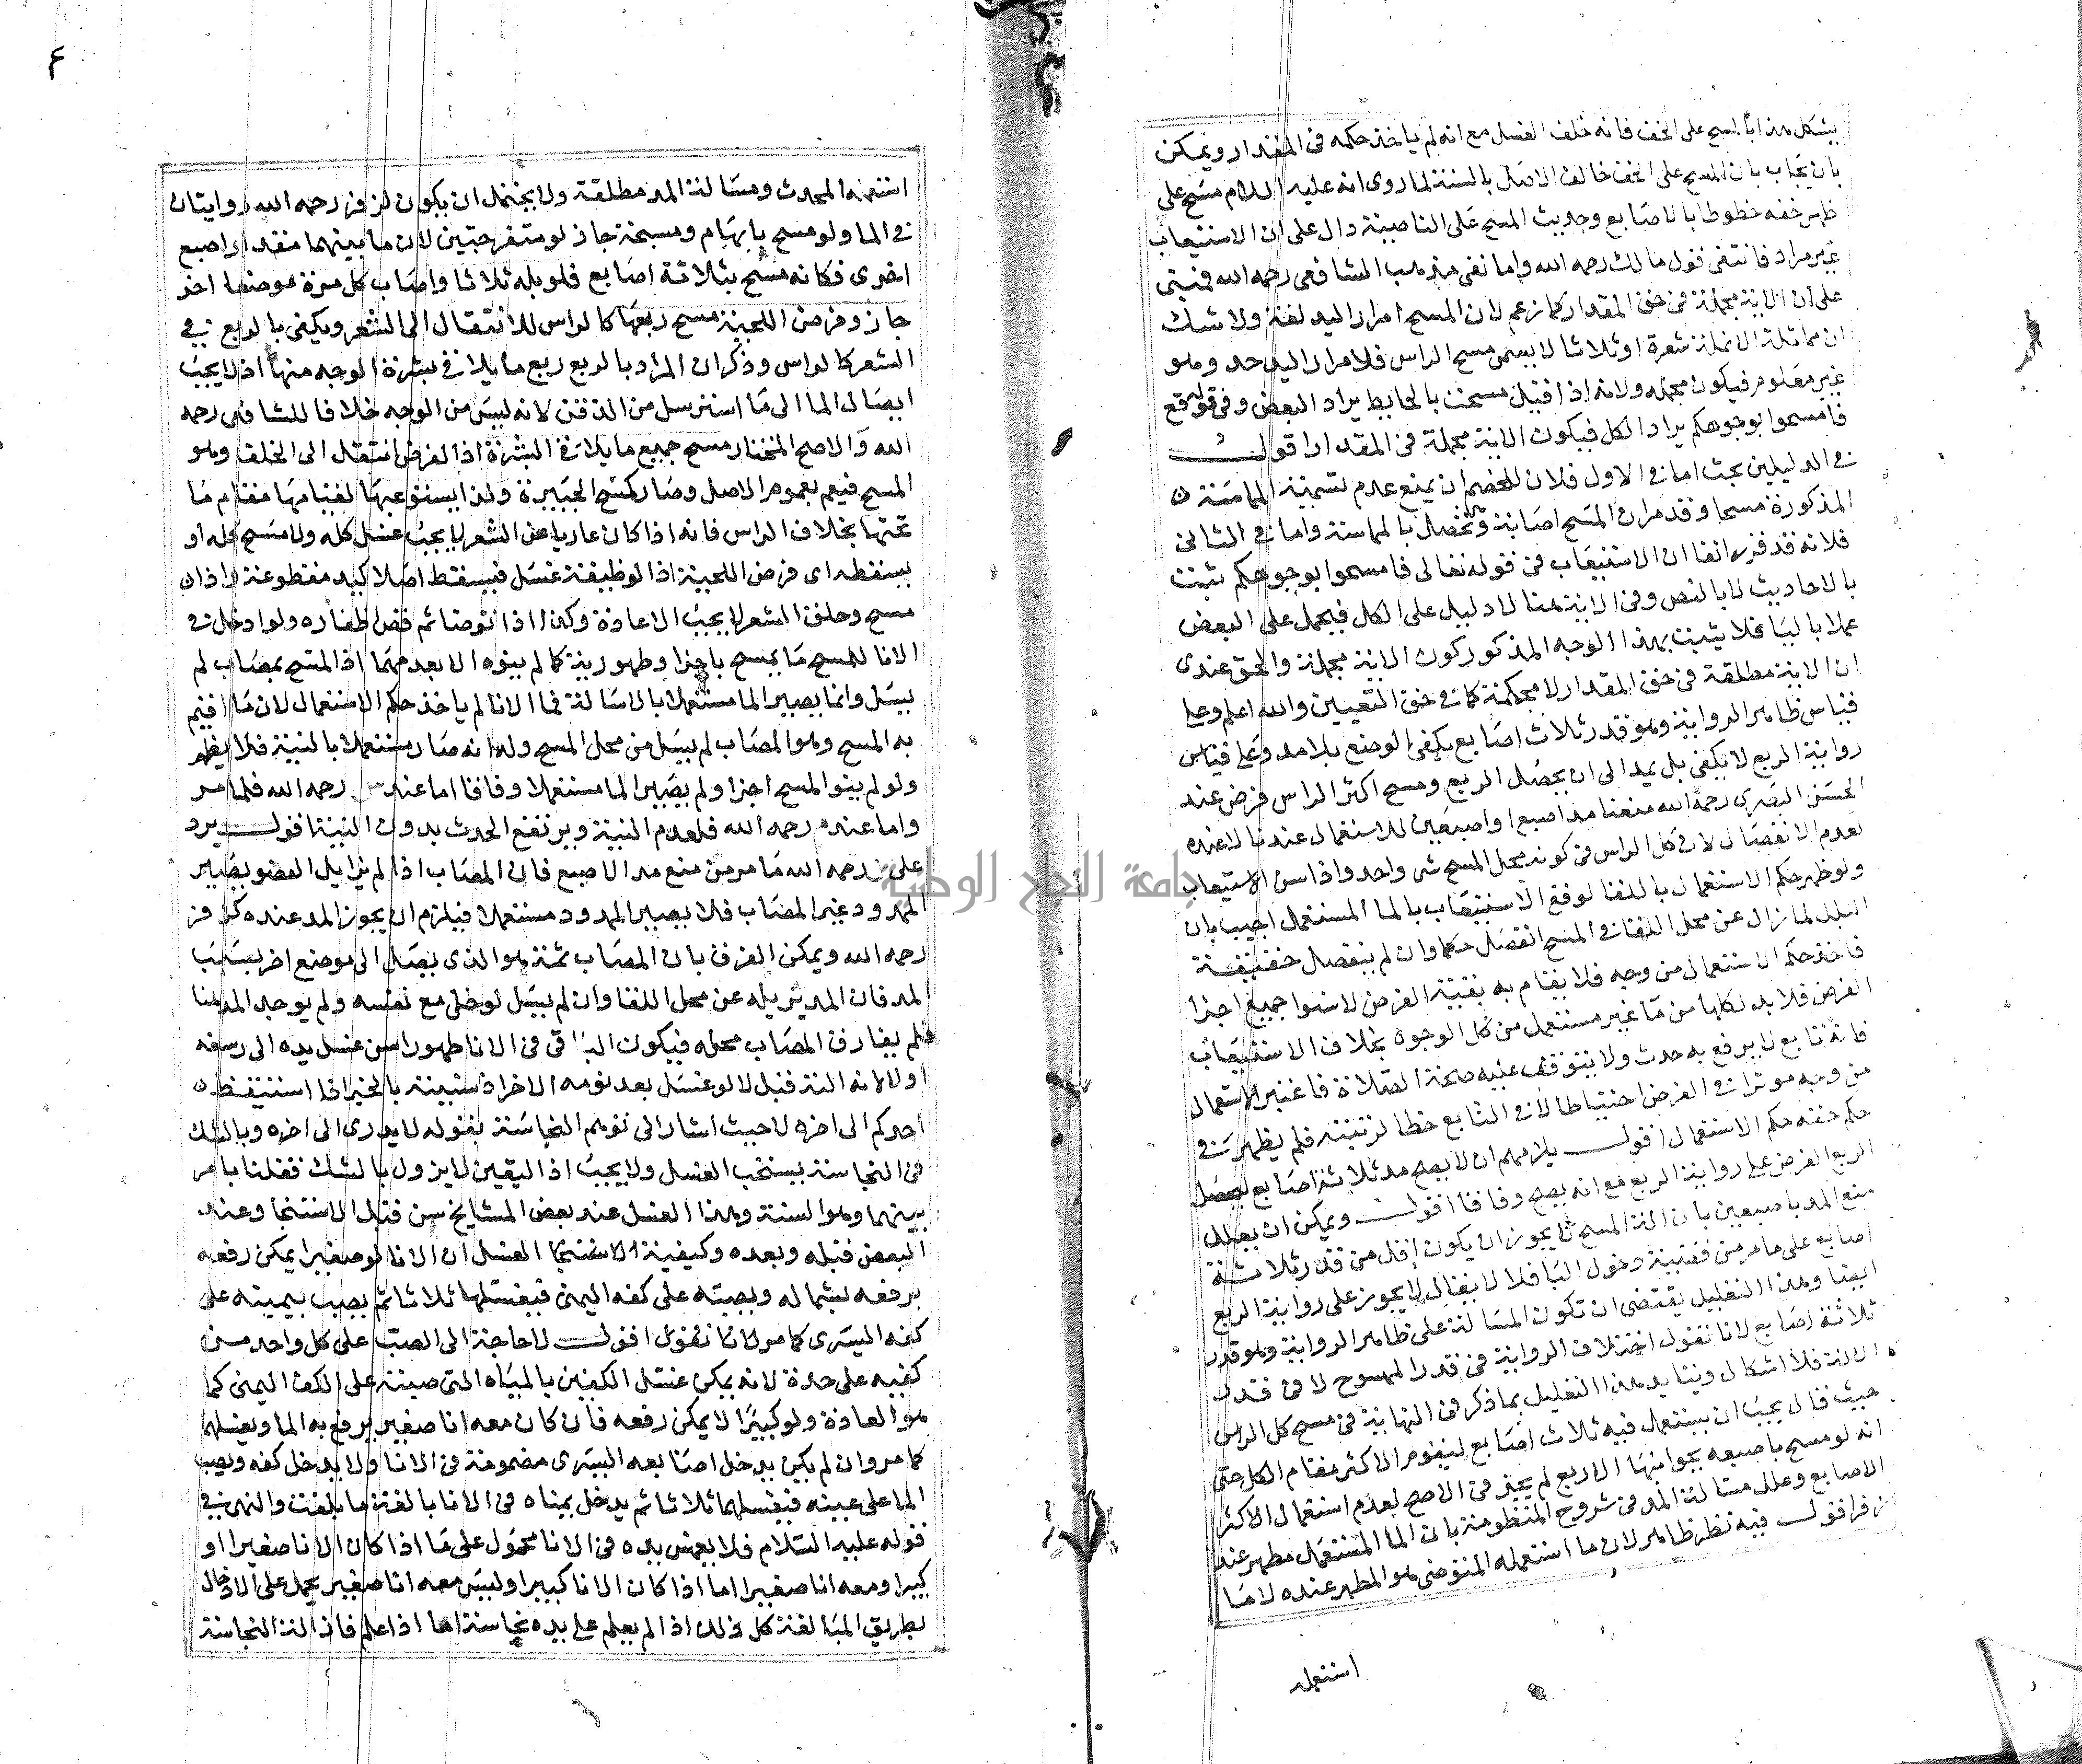 يشكل هذا بالمسح على الخف فانه خلف الغسل مع انه لم ياخذ حكمه في المقدار ويمكن
بان يجاب بان المسح على الخف خالف الاصل بالسنة لما روى انه عليه السلام مسح على
ظهر خفه خطوطا بالاصابع وحديث المسح على الناصية دال على ان الاستيعاب
غير مراد فانتفى قول مالك رحمه الله واما نفى مذهب الشافعى رحمه الله فمبنى
على ان الاية مجملة في حق المقدار كما زعم لان المسح امرار اليد لغة ولا شك
ان مماسة الانملة شعرة او ثلاثا لا يسمى مسح الراس فلامرار اليد حد وهو
غير معلوم فيكون مجمله ولانه اذا قيل مسحت بالحايط يراد البعض وفى قوله تع
فامسحوا بوجوهكم يراد الكل فيكون الاية مجملة في المقدار اقول
في الدليلين بحث اما في الاول فلان للخصم ان يمنع عدم تسمية المماسة
المذكورة مسحا وقد مر ان المسح اصابة وتحصل بالمماسة واما في الثانى
فلانه قد قرر انفا ان الاستيعاب في قوله تعالى فامسحوا بوجوهكم ثبت
بالاحاديث لا بالنص وفى الاية هنا لا دليل على الكل فيحمل على البعض
عملا بالباء فلا يثبت بهذا الوجه المذكور كون الاية مجملة والحق عندى
ان الاية مطلقة في حق المقدار لا محكمة كما في حق التعيين والله اعلم وعلى
قياس ظاهر الرواية وهو قدر ثلاث اصابع يكفى الوضع بلا مد وعلى قياس
رواية الربع لا يكفى بل يمد الى ان يحصل الربع ومسح اكثر الراس فرض عند
الحسن البصرى رحمه الله منعنا مد اصبع او اصبعين للاستعمال عندنا لا عنده
لعدم الانفصال لان كل الراس في كونه محل المسح شى واحد واذا سن الاستيعاب
ولو ظهر حكم الاستعمال باللقا لوقع الاستيعاب بالما المستعمل اجيب بان
البلل لما زال عن محل اللقا في المسح انفصل حكما وان لم ينفصل حقيقة
فاخذ حكم الاستعمال من وجه فلا يقام به بقية الفرض لاستوا جميع اجزا
الفرض فلا بد لكلها من ما غير مستعمل من كل الوجوه بخلاف الاستيعاب
فانه تابع لا يرفع به حدث ولا يتوقف عليه صحة الصلاة فاعتبر الاستعمال
من وجه موثرا في الفرض احتياطا لا في التابع حطا لرتبته فلم يظهر في
حكم حقه حكم الاستعمال اقول يلزمهم ان لا يصح مد ثلاثة اصابع ليحصل
الربع الفرض على رواية الربع مع انه يصح وفاقا اقول ويمكن ان يعلل
منع المد باصبعين بان الة المسح لا يجوز ان يكون اقل من قدر ثلاثة
اصابع على ما مر من قضية دخول البا فلا لا يقال لا يجوز على رواية الربع
ايضا وهذا التعليل يقتضى ان تكون المسالة على ظاهر الرواية وهو قدر
ثلاثة اصابع لانا نقول اختلاف الرواية في قدر الممسوح لا في قدر
الالة فلا اشكال ويتايد هذا التعليل بما ذكر في النهاية في مسح كل الراس
حيث قال يجب ان يستعمل فيه ثلاث اصابع ليقوم الاكثر مقام الكل حتى
انه لو مسح باصبعه بجوانبها الاربع لم يجز في الاصح لعدم استعمال الاكثر
الاصابع وعلل مسالة المد في شروح المنظومة بان الما المستعمل مطهر عند
زفر اقول فيه نظر ظاهر لان ما استعمله المتوضى هو المطهر عنده لا ما
استعمله
٤
استعمله المحدث ومسالة المد مطلقة ولا يحتمل ان يكون لزفر رحمه الله روايتان
في الما ولو مسح بابهام ومسبحة جاز لو متفرجتين لان ما بينهما مقدار اصبع
اخرى فكانه مسح بثلاثة اصابع فلو بله ثلاثا واصاب كل مرة موضعا اخر
جاز وفرض اللحية مسح ربعها كالراس للانتقال الى الشعر ويكفى بالربع في
الشعر كالراس وذكر ان المراد بالربع ربع ما يلاقى بشرة الوجه منها اذ لا يجب
ايصال الما الى ما استرسل من الذقن لانه ليس من الوجه خلافا للشافعى رحمه
الله والاصح المختار مسح جميع ما يلاقى البشرة اذ الفرض انتقل الى الخلف وهو
المسح فيعم بعموم الاصل وصار كمسح الجبيرة ولذا يستوعبها لقيامها مقام ما
تحتها بخلاف الراس فانه اذا كان عاريا عن الشعر لا يجب غسل كله ولا مسح كله او
يسقط اى فرض اللحية اذ الوظيفة غسل فيسقط اصلا كيد مقطوعة واذا
مسح وحلق الشعر لا يجب الاعادة وكذا اذا توضا ثم قص اظفاره ولو ادخل في
الانا للمسح ما يمسح باجزا وطهورية كما لم ينوه الا بعدهما اذ المسح بمصاب لم
يسل وانما يصير الما مستعملا بالاسالة فما الانا لم ياخذ حكم الاستعمال لان ما اقيم
به المسح وهو المصاب لم يسل من محل المسح وله انه صار مستعملا بالنية فلا يطهر
ولو لم ينو المسح اجزا ولم يصير الما مستعملا وفاقا اما عند س رحمه الله فلما مر
واما عند م رحمه الله فلعدم النية ويرتفع الحدث بدون النية اقول يرد
على رحمه الله ما مر من منع مد الاصبع فان المصاب اذا لم يزايل العضو بصير
الممدود غير المصاب فلا يصير الممدود مستعملا فيلزم ان يجوز المد عنده كزفر
رحمه الله ويمكن الفرق بان المصاب ثمة هو الذى يصل الى موضع اخر بسبب
المد فان المد يزيله عن محل اللقا وان لم يسل لو خلى مع نفسه ولم يوجد المد هنا
فلم يفارق المصاب محله فيكون الباقى في الانا طهورا سن غسل يده الى رسغه
اولا لانه الة قبل لا لو غسل بعد نومه الاخر اذ سنيته بالخبر اذا استيقظ
احدكم الى اخره لا حيث اشار الى توهم النجاسة بقوله لا يدرى الى اخره وبالشك
في النجاسة يستحب الغسل ولا يجب اذ اليقين لا يزول بالشك فقلنا بامر
بينهما وهو السنة وهذا الغسل عند بعض المشايخ سن قبل الاستنجا وعند
البعض قبله وبعده وكيفية الاستنجا الغسل ان الانا لو صغيرا يمكن رفعه
يرفعه بشماله ويصبه على كفه اليمنى فيغسلها ثلاثا ثم يصب بيمينه على
كفه اليسرى كما مر لانا نقول اقول لا حاجة الى الصب على كل واحد من
كفيه على حدة لانه يمكن غسل الكفين بالمياه التى صبت على الكف اليمنى كما
هو العادة ولو كبيرا لا يمكن رفعه فان كان معه انا صغير يرفع به الما ويغسلهما
كما مر وان لم يكن يدخل اصابعه اليسرى مضمومة في الانا ولا يدخل كفه ويصب
الما على يمينه فيغسلها ثلاثا ثم يدخل يمناه في الانا بالغة ما بلغت والنهى في
قوله عليه السلام فلا يغمس يده في الانا محمول على ما اذا كان الانا صغيرا او
كبيرا ومعه انا صغيرا اما اذا كان الانا كبيرا وليس معه انا صغير يحمل على الادخال
بطريق المبالغة كل ذلك اذا لم يعلم على يده نجاسة اما اذا علم فازالة النجاسة
جامعة النجاح الوطنية